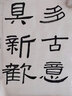 多古意
具新歡